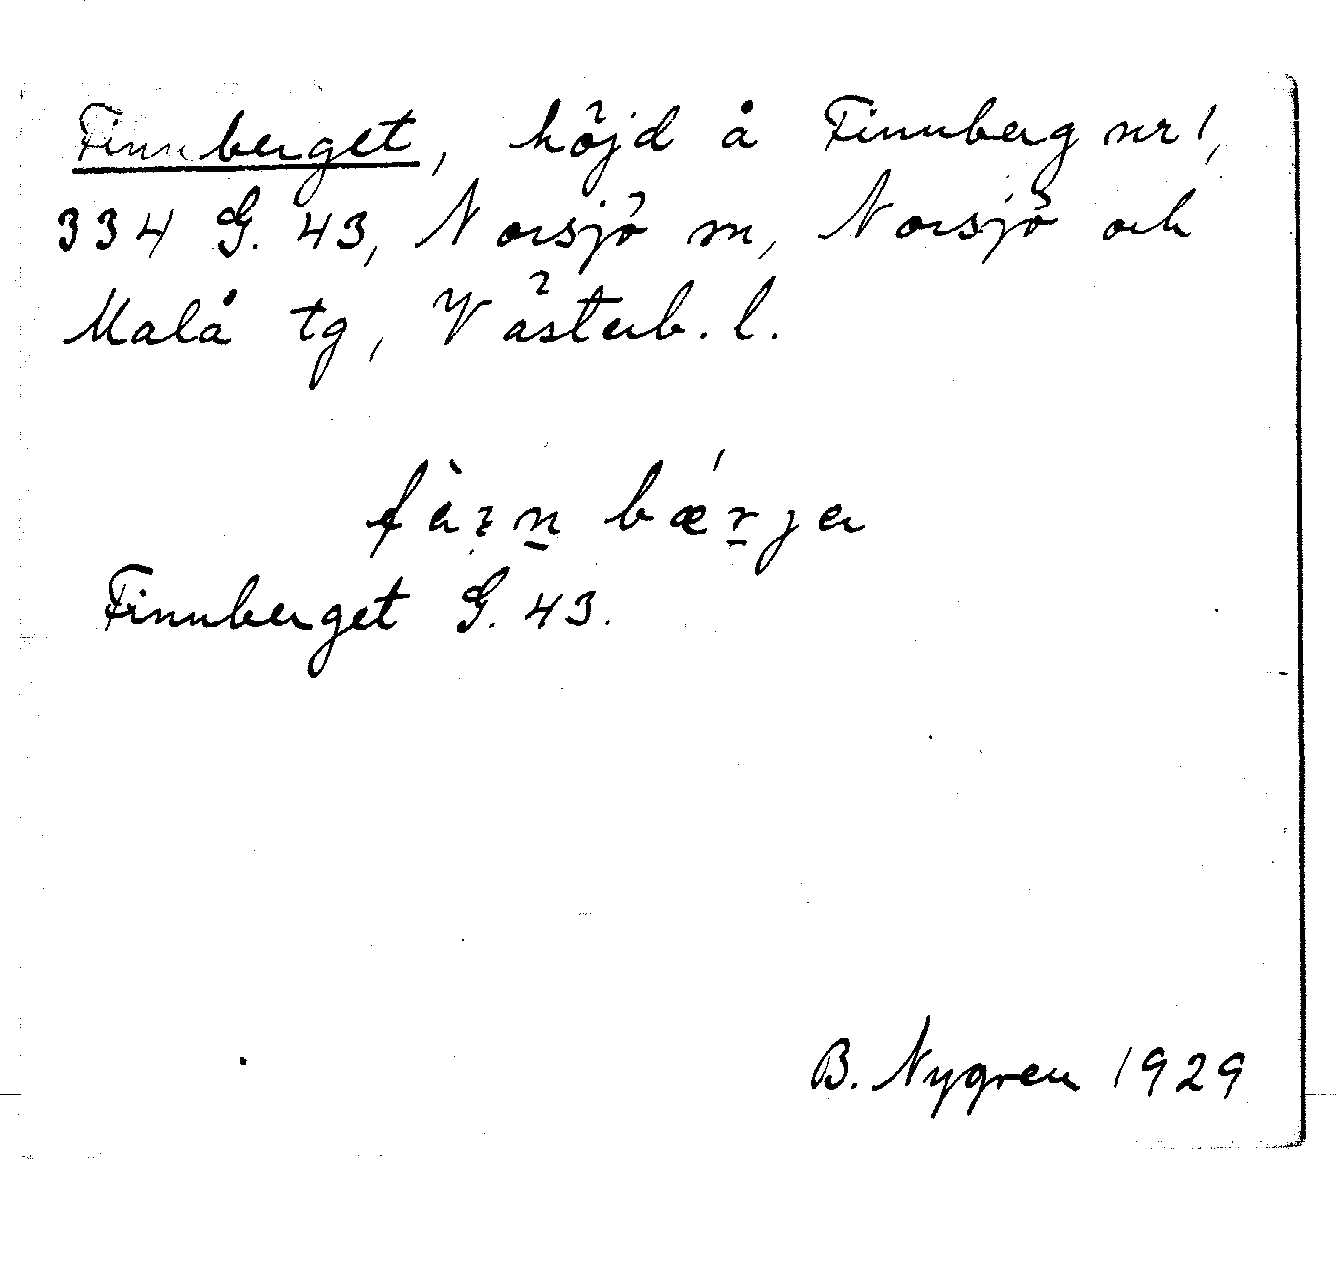 Finnberget, höjd å Finnberg nr 1,
334 G. 43, Norsjö m, Norsjö och
Malå tg, Västerb. l.
bǽr̲ja
Finnberget G. 43.
B. Nygren 1929